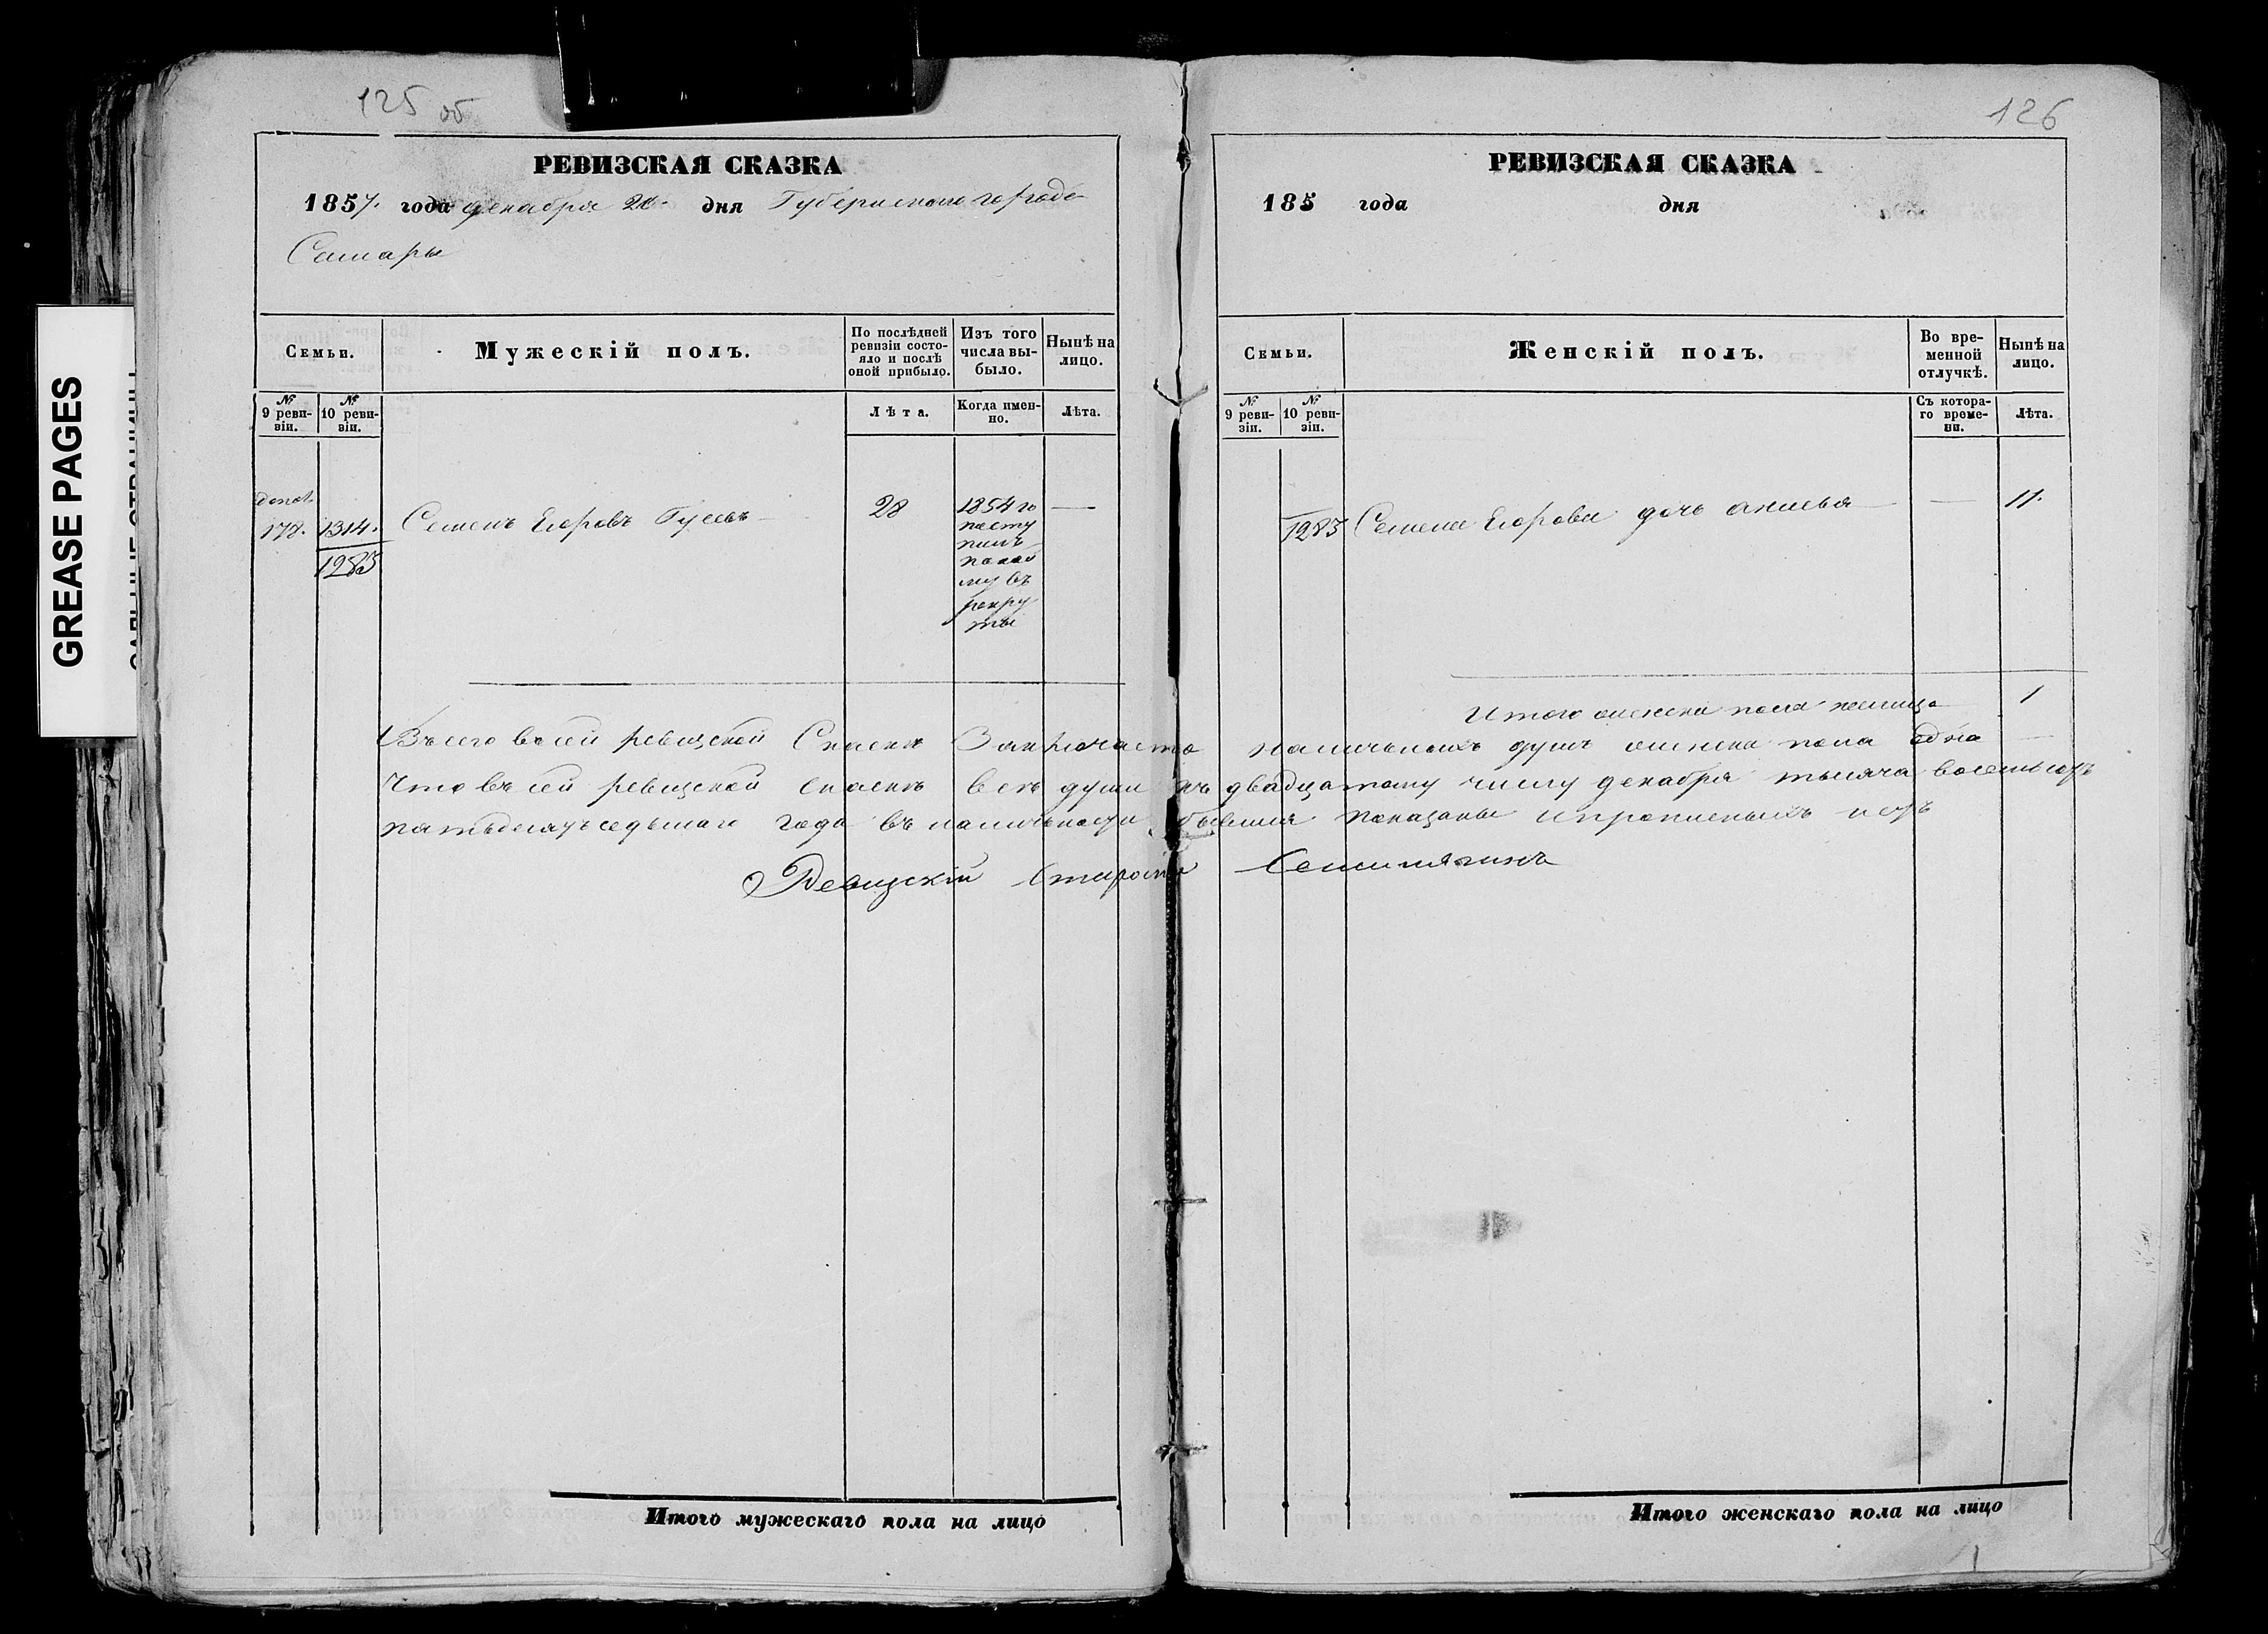 GREASE PAGES
125 об
РЕВИЗСКАЯ СКАЗКА
1857. года декабря 20. дня Губернскаго города
Самары
Семьи.
Мужескій полъ.
По послѣдней ревизіи состо-
яло и послѣ
оной прибыло.
Изъ того
числа вы-
было.
Нынѣ на
лицо.
№
9 реви-
зіи.
№
10 реви-
зіи.
Лѣта.
Когда имен-
но.
Лѣта.
178.
1314.
1283
Семенъ Егоровъ Гусевъ
28
1854 го
посту
пилъ
въ
рекру
ты
—
Всего в сей ревизской Сказке Заключается наличныхъ душъ женска пола одна
Что въ сей ревизской сказке все души къ двадцатому числу декабря тысяча восемьсотъ
пятьдесятъ седьмаго года въ наличности бывшия показаны и прописныхъ нетъ
Ревизскій Староста
Итого мужескаго пола на лицо
126
РЕВИЗСКАЯ СКАЗКА
185 года дня
Семьи.
Женскій полъ.
Во вре-
менной
отлучкѣ.
Нынѣ на
лицо.
№
9 реви-
зіи.
№
10 реви-
зіи.
Съ котора-
го време-
ни.
Лѣта.
1283
Семена Егорова дочь
—
11.
Итого женска пола налицо
1
Итого женскаго пола на лицо
1